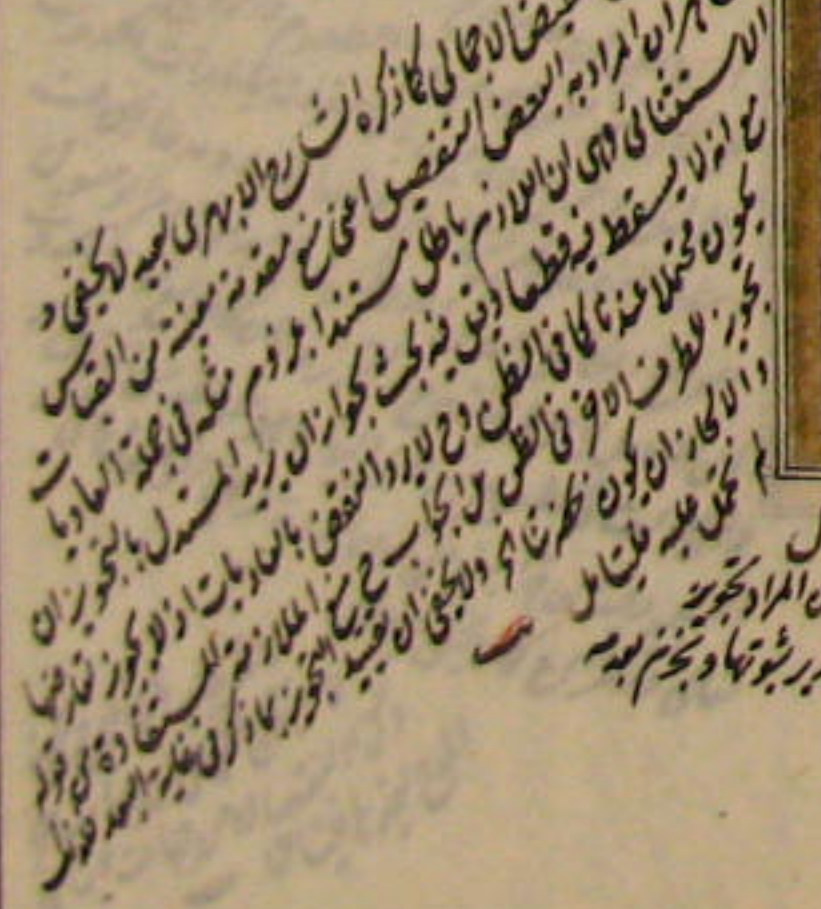 الاجمالي كما ذكره الشارح الابهري بعيد لا يخفى و
ان المراد به النقض التفصيل اعنى منع مقدمة معينة من القياس
الاستثنائى وهى ان اللازم باطل مستندا بلزوم مثله فى جملة العاديات
مع انه لا يسقط فيه قطعا وقيل فيه بحث لجواز ان يريد المستدل بالتجويز ان
يكون محتملا عندنا كما فى الظن وح لا يرد النقض بالعاديات اذ لا يجوز نقايضها
يجوز الطرف الاخر فى الظن بل الجواب ح منع الملازمة المستفادة من قوله
والا لجاز ان يكون ولا يخفى ان تقييد التجويز بما ذكر فى غاية البعد فلهذا
لم نحمل عليه فليتامل
المراد تجويز
ثبوتها ونجزم بعدمه